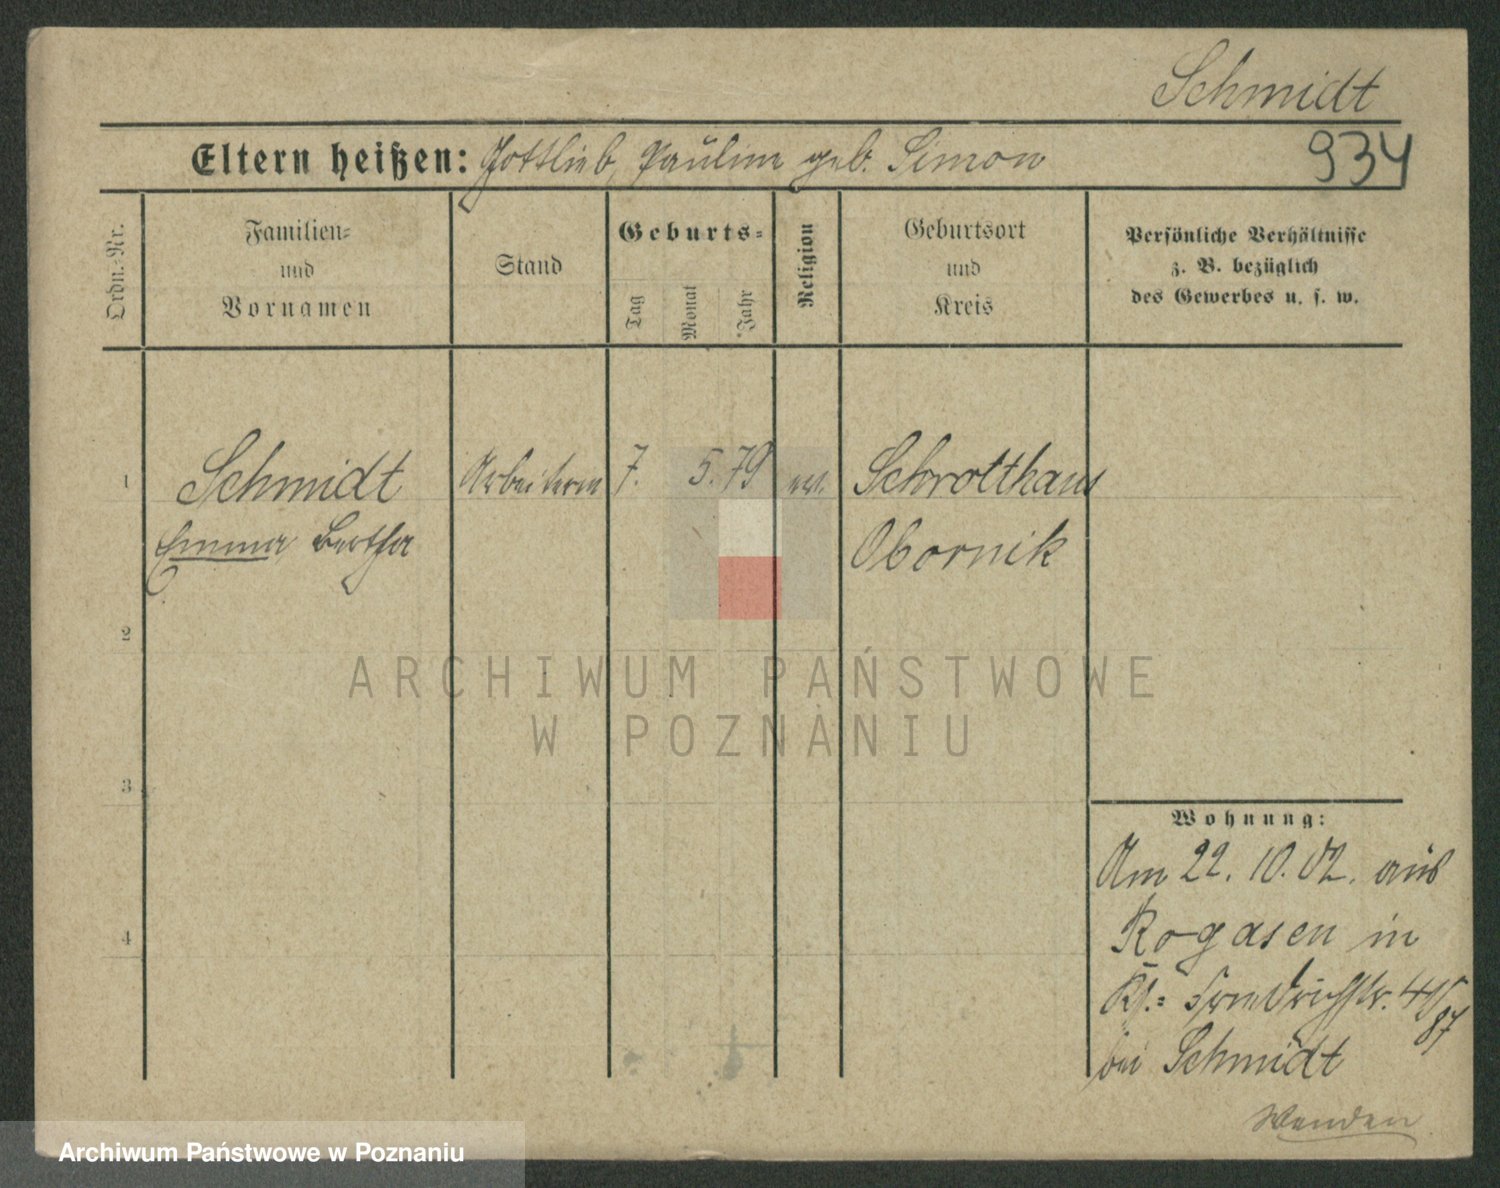 Schmidt
Eltern heißen: Gottlieb, Pauline geb. Simon
934
Ordn.-Nr.
Familien-
und
Vornamen
Stand
Geburts-
Tag
Monat
Jahr
Religion
Geburtsort
und
Kreis
Persönliche Verhältnisse
z. B. bezüglich
des Gewerbes u. s. w.
1 Schmidt Arbeiterin 7. 5. 79 ev. Schrotthaus
Emma Bertha Obornik
2
ARCHIWUM PAŃSTWOWE
W POZNANIU
3
Wohnung:
Am 22. 10. 02. aus
4 Rogasen in
Friedrichstr. 45/87
bei Schmidt
Wenden
Archiwum Państwowe w Poznaniu